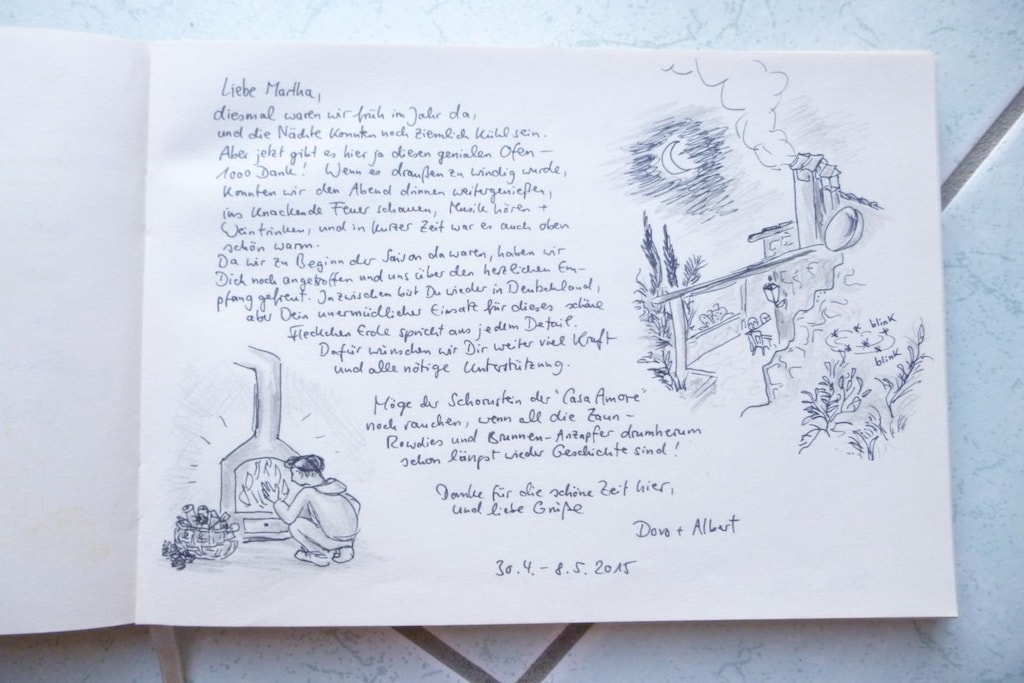 Liebe Martha,
diesmal waren wir früh im Jahr da,
und die Nächte konnten noch ziemlich kühl sein.
Aber jetzt gibt es hier ja diesen genialen Ofen –
1000 Dank! Wenn es draußen zu windig wurde,
konnten wir den Abend drinnen weitergenießen,
ins knackende Feuer schauen, Musik hören +
Wein trinken, und in kurzer Zeit war es auch oben
schön warm.
Da wir zu Beginn der Saison da waren, haben wir
Dich noch angetroffen und uns über den herzlichen Em-
pfang gefreut. Inzwischen bist Du wieder in Deutschland,
aber Dein unermüdlicher Einsatz für dieses schöne
Fleckchen Erde spricht aus jedem Detail.
Dafür wünschen wir Dir weiter viel Kraft
und alle nötige Unterstützung.
Möge der Schornstein der "Casa Amore"
noch rauchen, wenn all die Zaun-
Rowdies und Brunnen-Anzapfer drumherum
schon längst wieder Geschichte sind!
Danke für die schöne Zeit hier,
und liebe Grüße
Doro + Albert
30.4. – 8.5. 2015
blink
blink